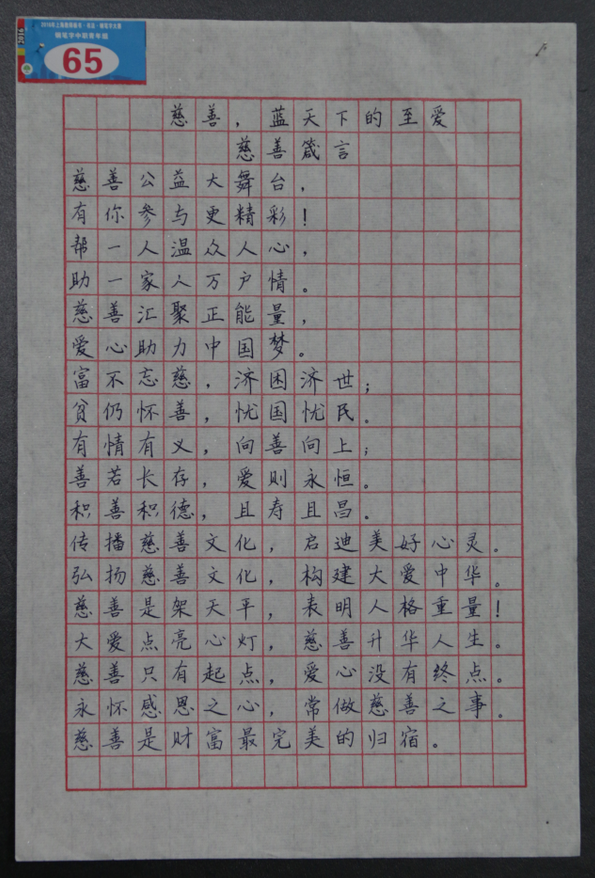 钢笔字中职青年组
2016
65
慈善，蓝天下的至爱
慈善箴言
慈善公益大舞台，
有你参与更精彩！
帮一人温众人心，
助一家人万户情。
慈善汇聚正能量，
爱心助力中国梦。
富不忘慈，济困济世；
贫仍怀善，忧国忧民。
有情有义，向善向上；
善若长存，爱则永恒。
积善积德，且寿且昌。
传播慈善文化，启迪美好心灵。
弘扬慈善文化，构建大爱中华。
慈善是架天平，表明人格重量！
大爱点亮心灯，慈善升华人生。
慈善只有起点，爱心没有终点。
永怀感恩之心，常做慈善之事。
慈善是财富最完美的归宿。